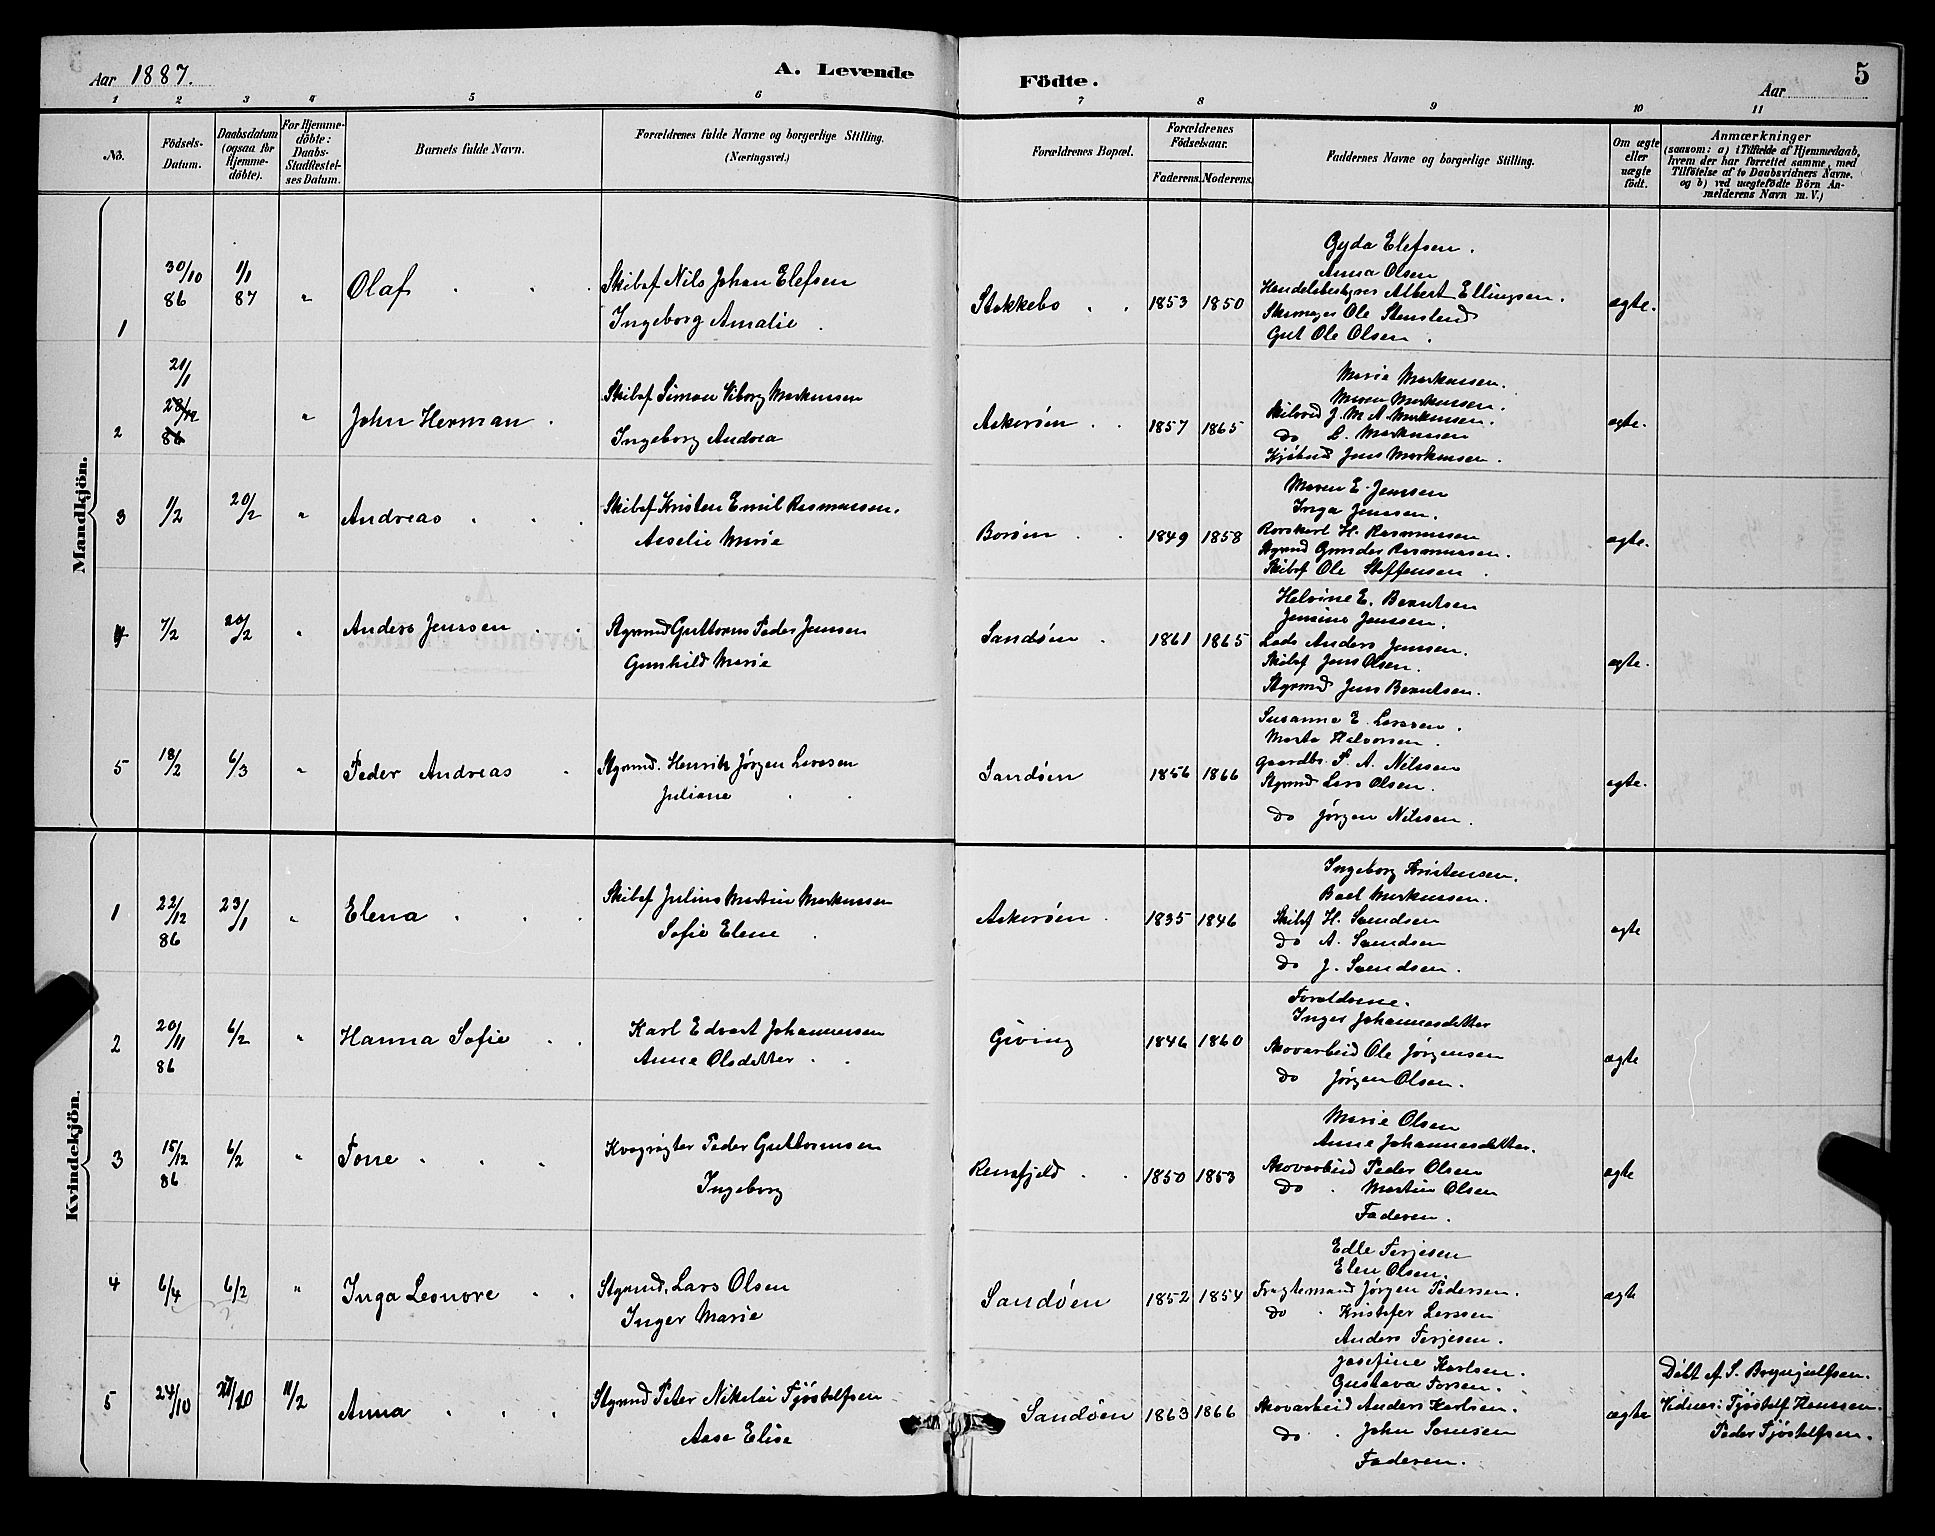 Aar 1887.
A. Levende
Födte.
Aar
5
1 2 3 4 5 6 7 8 9 10 11
No.
Födsels-Datum.
Daabsdatum (ogsaa for Hjemmedöbte).
For Hjemmedöbte: Daabs-Stadfæstelses Datum.
Barnets fulde Navn.
Forældrenes fulde Navne og borgerlige Stilling. (Næringsvei.)
Forældrenes Bopæl.
Forældrenes Födselsaar.
Faderens. Moderens.
Faddernes Navne og borgerlige Stilling.
Om ægte eller uægte födt.
Anmærkninger
(saasom: a) i Tilfælde af Hjemmedaab,
hvem der har forrettet samme, med
Tilföielse af to Daabsvidners Navne.
og b) ved uægtefödte Börn An-
melderens Navn m. V.)
Mandkjön.
1 30/10 86 1/1 87 " Olaf
Skibsf Nils Johan Elefsen
Ingeborg Amalie
Stokkebo 1853 1850
Gyda Elefsen.
Anna Olsen
Handelsbestyrer Albert Ellingsen.
Skomager Ole Stensland
Gut Ole Olsen.
ægte.
2 21/1 28/12 86 " John Herman
Skibsf Simon Viborg Markussen
Ingeborg Andrea
Askerøen 1857 1865
Marie Markussen.
Maren Markussen.
Skibsred J. M. A. Markussen.
do L. Markussen
Jens Markussen.
ægte.
3 1/2 20/2 " Andreas
Skibsf Kristen Emil Rasmussen.
Aaselie Marie
Borøen 1849 1858
Maren E. Jensen
Inga Jenssen.
Rorskarl H. Rasmussen
Styrmd Gunder Rasmussen.
Skibsf Ole Steffensen.
ægte.
4 7/2 20/2 " Anders Jenssen
Styrmd Guttorm Peder Jensen
Gunhild Marie
Sandøen 1861 1865
Helvine E. Berntsen
Jensine Jenssen.
Lods Anders Jensen.
Skibsf Jens Olsen.
Styrmd Jens Berntsen.
ægte.
5 18/2 6/3 " Peder Andreas
Styrmd. Henrik Jörgen Larssen
Juliane
Sandøen 1856 1866
Susanne E. Larssen.
Marta Halvorsen.
Gaardbr. P. A. Nilssen
Styrmd Lars Olsen.
do Jörgen Nilssen.
ægte.
Kvindekjön.
1 22/12 86 23/1 " Elena
Skibsf Julius Martin Markussen
Sofie Elene
Askerøen 1835 1846
Ingeborg Kristensen.
Boel Markussen.
Skibsf H. Svendsen
do A. Svendsen
do J. Svendsen.
ægte
2 20/11 86 6/2 " Hanna Sofie
Karl Edvart Johannessen
Anne Olsdatter
Giving 1846 1860
Foreldrene.
Inger Johannesdatter
Skovarbeid Ole Jörgensen
do Jörgen Olsen.
ægte
3 15/12 86 6/2 " Tone
Kvægrøgter Peder Guttormsen
Ingeborg
Rensfjeld 1850 1853
Marie Olsen
Anne Johannesdatter.
Skovarbeid Peder Olsen
do Martin Olsen
Faderen.
ægte
4 6/4 6/2 " Inga Leonore
Styrmd. Lars Olsen
Inger Marie
Sandøen 1852 1854
Edle Terjesen
Elen Olsen.
Fragtemand Jørgen Pedersen.
do Kristofer Larssen
Anders Terjesen.
ægte
5 24/10 27/10 11/2 Anna
Styrmd Peter Nikolai Tjöstolfsen
Aase Elise
Sandøen 1863 1866
Josefine Karlsen.
Gustava Torsen.
Skovarbeid Anders Karlsen.
do John Tomsen
Faderen.
ægte
Döbt af S. Brynjulfsen.
Vidner: Tjöstolf Hanssen.
Peder Tjöstolfsen.